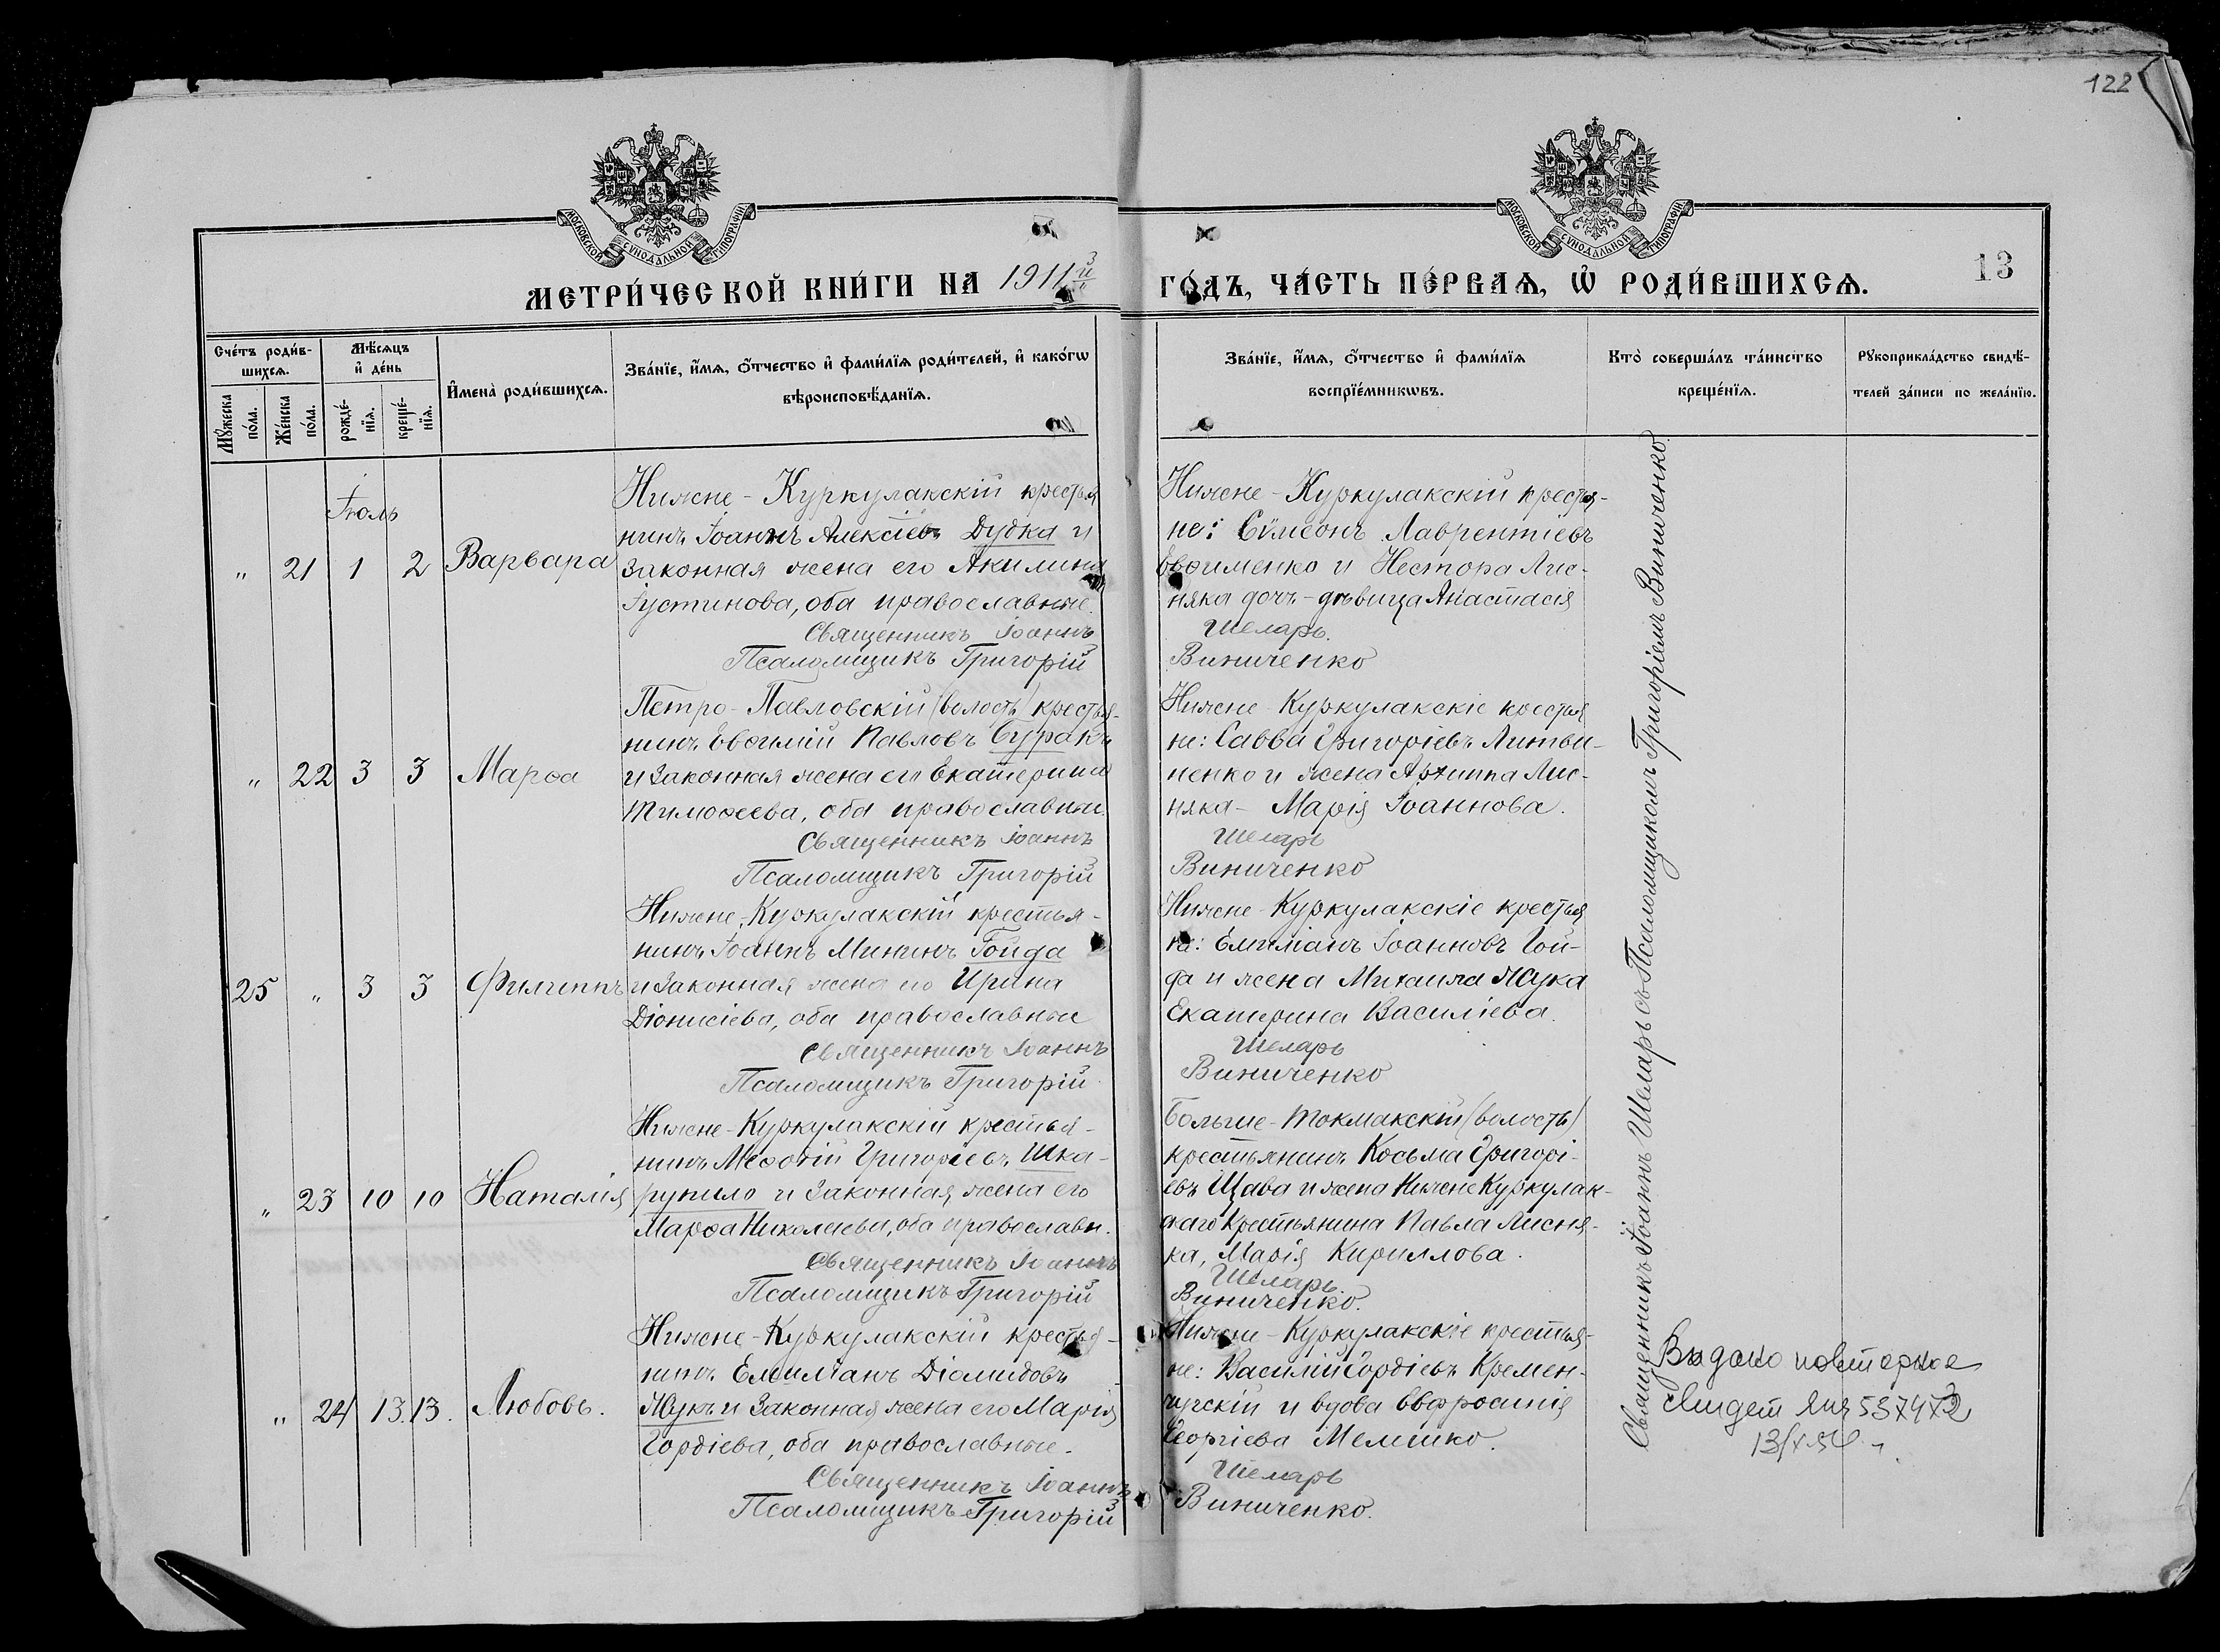 122
МОСКОВСКОЙ СѴНОДАЛЬНОЙ ТИПОГРАФІИ
МОСКОВСКОЙ СѴНОДАЛЬНОЙ ТИПОГРАФІИ
МЕТРИ́ЧЕСКОЙ КНИ́ГИ НА 1911й
ГО́ДЪ, ЧА́СТЬ ПЕ́РВАѦ, Ѡ҆ РОДИ́ВШИХСѦ.
13
Сче́тъ роди́в-
шихсѧ.
Мꙋ́жеска
по́ла.
Же́нска
по́ла.
Мѣ́сѧцъ
и҆ де́нь
рожде́-
нїѧ.
креще́-
нїѧ.
И҆мена̀ роди́вшихсѧ.
Зва́нїе, и҆́мѧ, ѻ҆́тчество и҆ фами́лїѧ роди́телей, и҆ како́гѡ
вѣроисповѣ́данїѧ.
Зва́нїе, и҆́мѧ, ѻ҆́тчество и҆ фами́лїѧ
воспрїе́мникѡвъ.
Кто̀ соверша́лъ та́инство
креще́нїѧ.
Рꙋкоприкла́дство свидѣ́-
телей за́писи по жела́нїю.
Іюль
" 21 1 2 Варвара
Нижне-Куркулакскій крестья
нинъ Іоаннъ Алексіевъ Дудка и
законная жена его Акилина
Іустинова, оба православные.
Священникъ Іоаннъ
Псаломщикъ Григорій
Нижне-Куркулакскій крестья-
не: Сѵмеонъ Лаврентіевъ
Евѳименко и Нестора Лис-
няка дочь-дѣвица Анастасія
Шеларь.
Виниченко
" 22 3 3 Марѳа
Петро-Павловскій (волости) крестья-
нинъ Евѳимій Павловъ Буракъ
и законная жена его Екатерина
Тимоѳеева, оба православные.
Священникъ Іоаннъ
Псаломщикъ Григорій
Нижне-Куркулакскіе крестья
не: Савва Григоріевъ Литви-
ненко и жена Архиппа Лис-
няка- Марія Іоаннова.
Шеларь
Виниченко
25 " 3 3 Филиппъ
Нижне-Куркулакскій крестья-
нинъ Іоаннъ Мининъ Гойда
и законная жена его Ирина
Діонисіева, оба православные
Священникъ Іоаннъ
Псаломщикъ Григорій
Нижне-Куркулакскіе крестья
не: Емиліанъ Іоанновъ Гой-
да и жена Михаила Жука
Екатерина Василіева.
Шеларь
Виниченко
" 23 10 10 Наталія
Нижне-Куркулакскій крестья-
нинъ Меѳодій Григоріевъ Шка-
рупило и законная жена его
Марѳа Николаева, оба православн.
Священникъ Іоаннъ
Псаломщикъ Григорій
Больше-Токмакскій (волости)
крестьянинъ Косьма Григорі-
евъ Щава и жена Нижне Куркулак-
скаго крестьянина Павла Лисня-
ка, Марія Кириллова.
Шеларь
Виниченко.
" 24 13. 13. Любовь.
Нижне-Куркулакскій крестья-
нинъ Емиліанъ Діомидовъ
Жукъ и законная жена его Марія
Гордіева, оба православные.
Священникъ Іоаннъ
Псаломщикъ Григорій
Нижне-Куркулакскіе крестья-
не: Василій Гордіевъ Кремен-
чугскій и вдова Евфросинія
Георгіева Мелешко.
Шеларь
Виниченко.
Священникъ Іоаннъ Шеларь съ Псаломщикомъ Григоріемъ Виниченко.
Выдано повторное
свидет